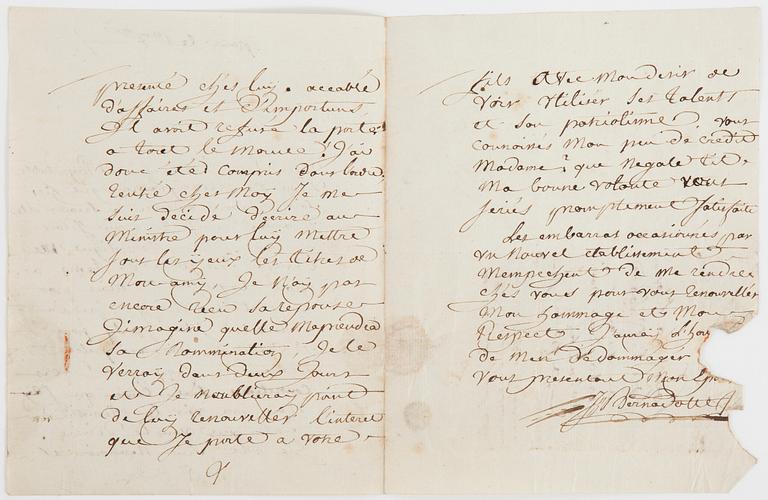 presenté chés luy. accablé
d'affaires et d'importuns
Il avoit refusé la porte
a tout le monde! J'ai
donc été compris dans
rentré chés Moy Je me
suis décidé d'écrire au
Ministre pour luy Mettre
sous les yeux les titres de
Mon amy, Je N'ay pas
encore reçu sa reponse
J'imagine quelle M'aprendra
sa Nommination, Je le
verray dans deux Jours
et Je Noublieray point
de luy renouveller l'interet
que Je porte a votre
fils avec Mon desir de
voir utiliser ses talents
et son patriotisme, vous
connoisés Mon peu de credit
Madame, que Negale t'il
Ma bonne volonté vous
seriés promptement satisfaite
Les embarras occasionnés par
un Nouvel etablissement
M'empechent de me rendre
chés vous pour vous renouveller
Mon hommage et Mon
Respect J'auray
de M'en dedommager
vous presentant Mon
J Bernadotte